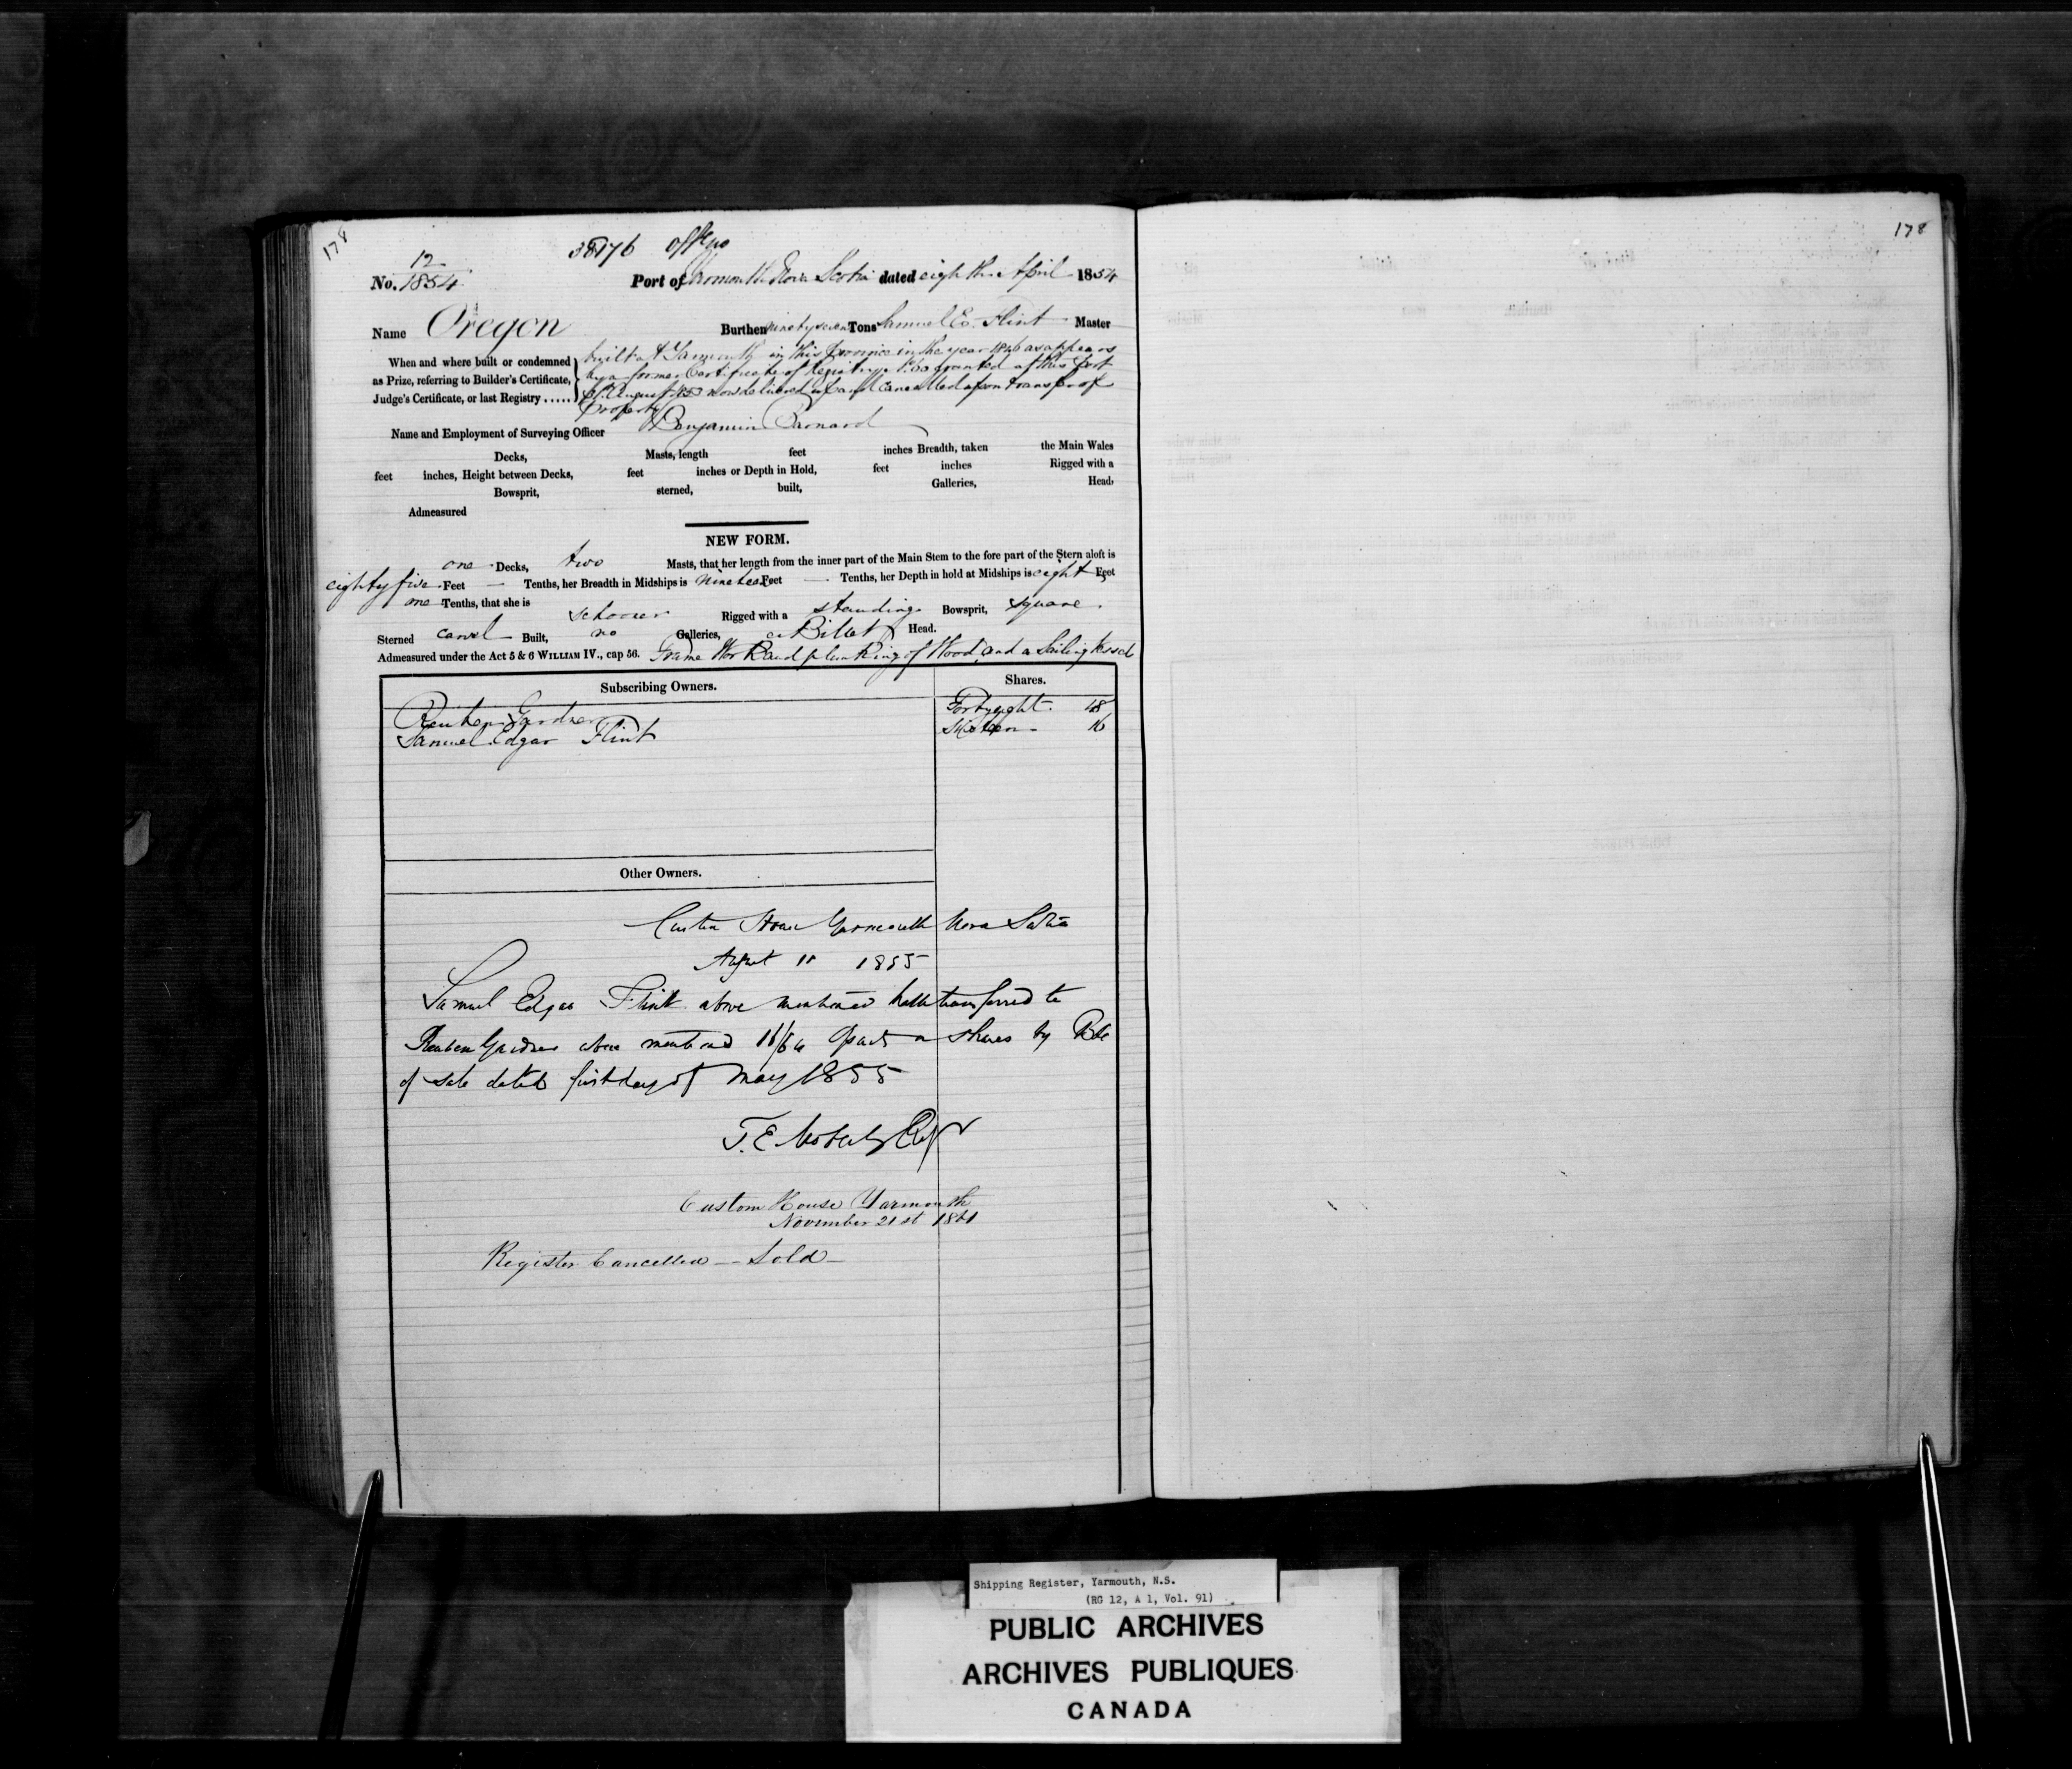 178
178
38176 Off No
12
No. 1854 Port of Yarmouth Nova Scotia dated eighth April 1854
Name Oregon Burthen ninety seven Tons Samuel E. Flint Master
When and where built or condemned
as Prize, referring to Builder's Certificate,
Judge's Certificate, or last Registry .....
built at Yarmouth in this Province in the year 1846 as appears
by a former Certificate of Registry granted at this Port
August 1853 now delivered up and cancelled upon transfer of
Property
Name and Employment of Surveying Officer Benjamin Barnard
Decks, Masts, length feet inches Breadth, taken the Main Wales
feet inches, Height between Decks, feet inches or Depth in Hold, feet inches Rigged with a
Bowsprit, sterned, built, Galleries, Head,
Admeasured
NEW FORM.
one Decks, two Masts, that her length from the inner part of the Main Stem to the fore part of the Stern aloft is
eighty five Feet — Tenths, her Breadth in Midships is nineteen Feet — Tenths, her Depth in hold at Midships is eight Feet
one Tenths, that she is schooner Rigged with a standing Bowsprit, square
Sterned carvel Built, no Galleries, a Billet Head.
Admeasured under the Act 5 & 6 WILLIAM IV., cap 56. Frame Work and planking of Wood, and a Sailing Vessel
Subscribing Owners. Shares.
Reuben Gardner Forty eight 48
Samuel Edgar Flint Sixteen 16
Other Owners.
Custom House Yarmouth Nova Scotia
August 11 1855
Samuel Edgar Flint above mentioned hath transferred to
Reuben Gardner above mentioned 16/64 parts or shares by Bill
of sale dated first day of May 1855
T. E. Moberly Regr
Custom House Yarmouth
November 21st 1861
Register Cancelled — Sold —
Shipping Register, Yarmouth, N.S.
(RG 12, A 1, Vol. 91)
PUBLIC ARCHIVES
ARCHIVES PUBLIQUES
CANADA